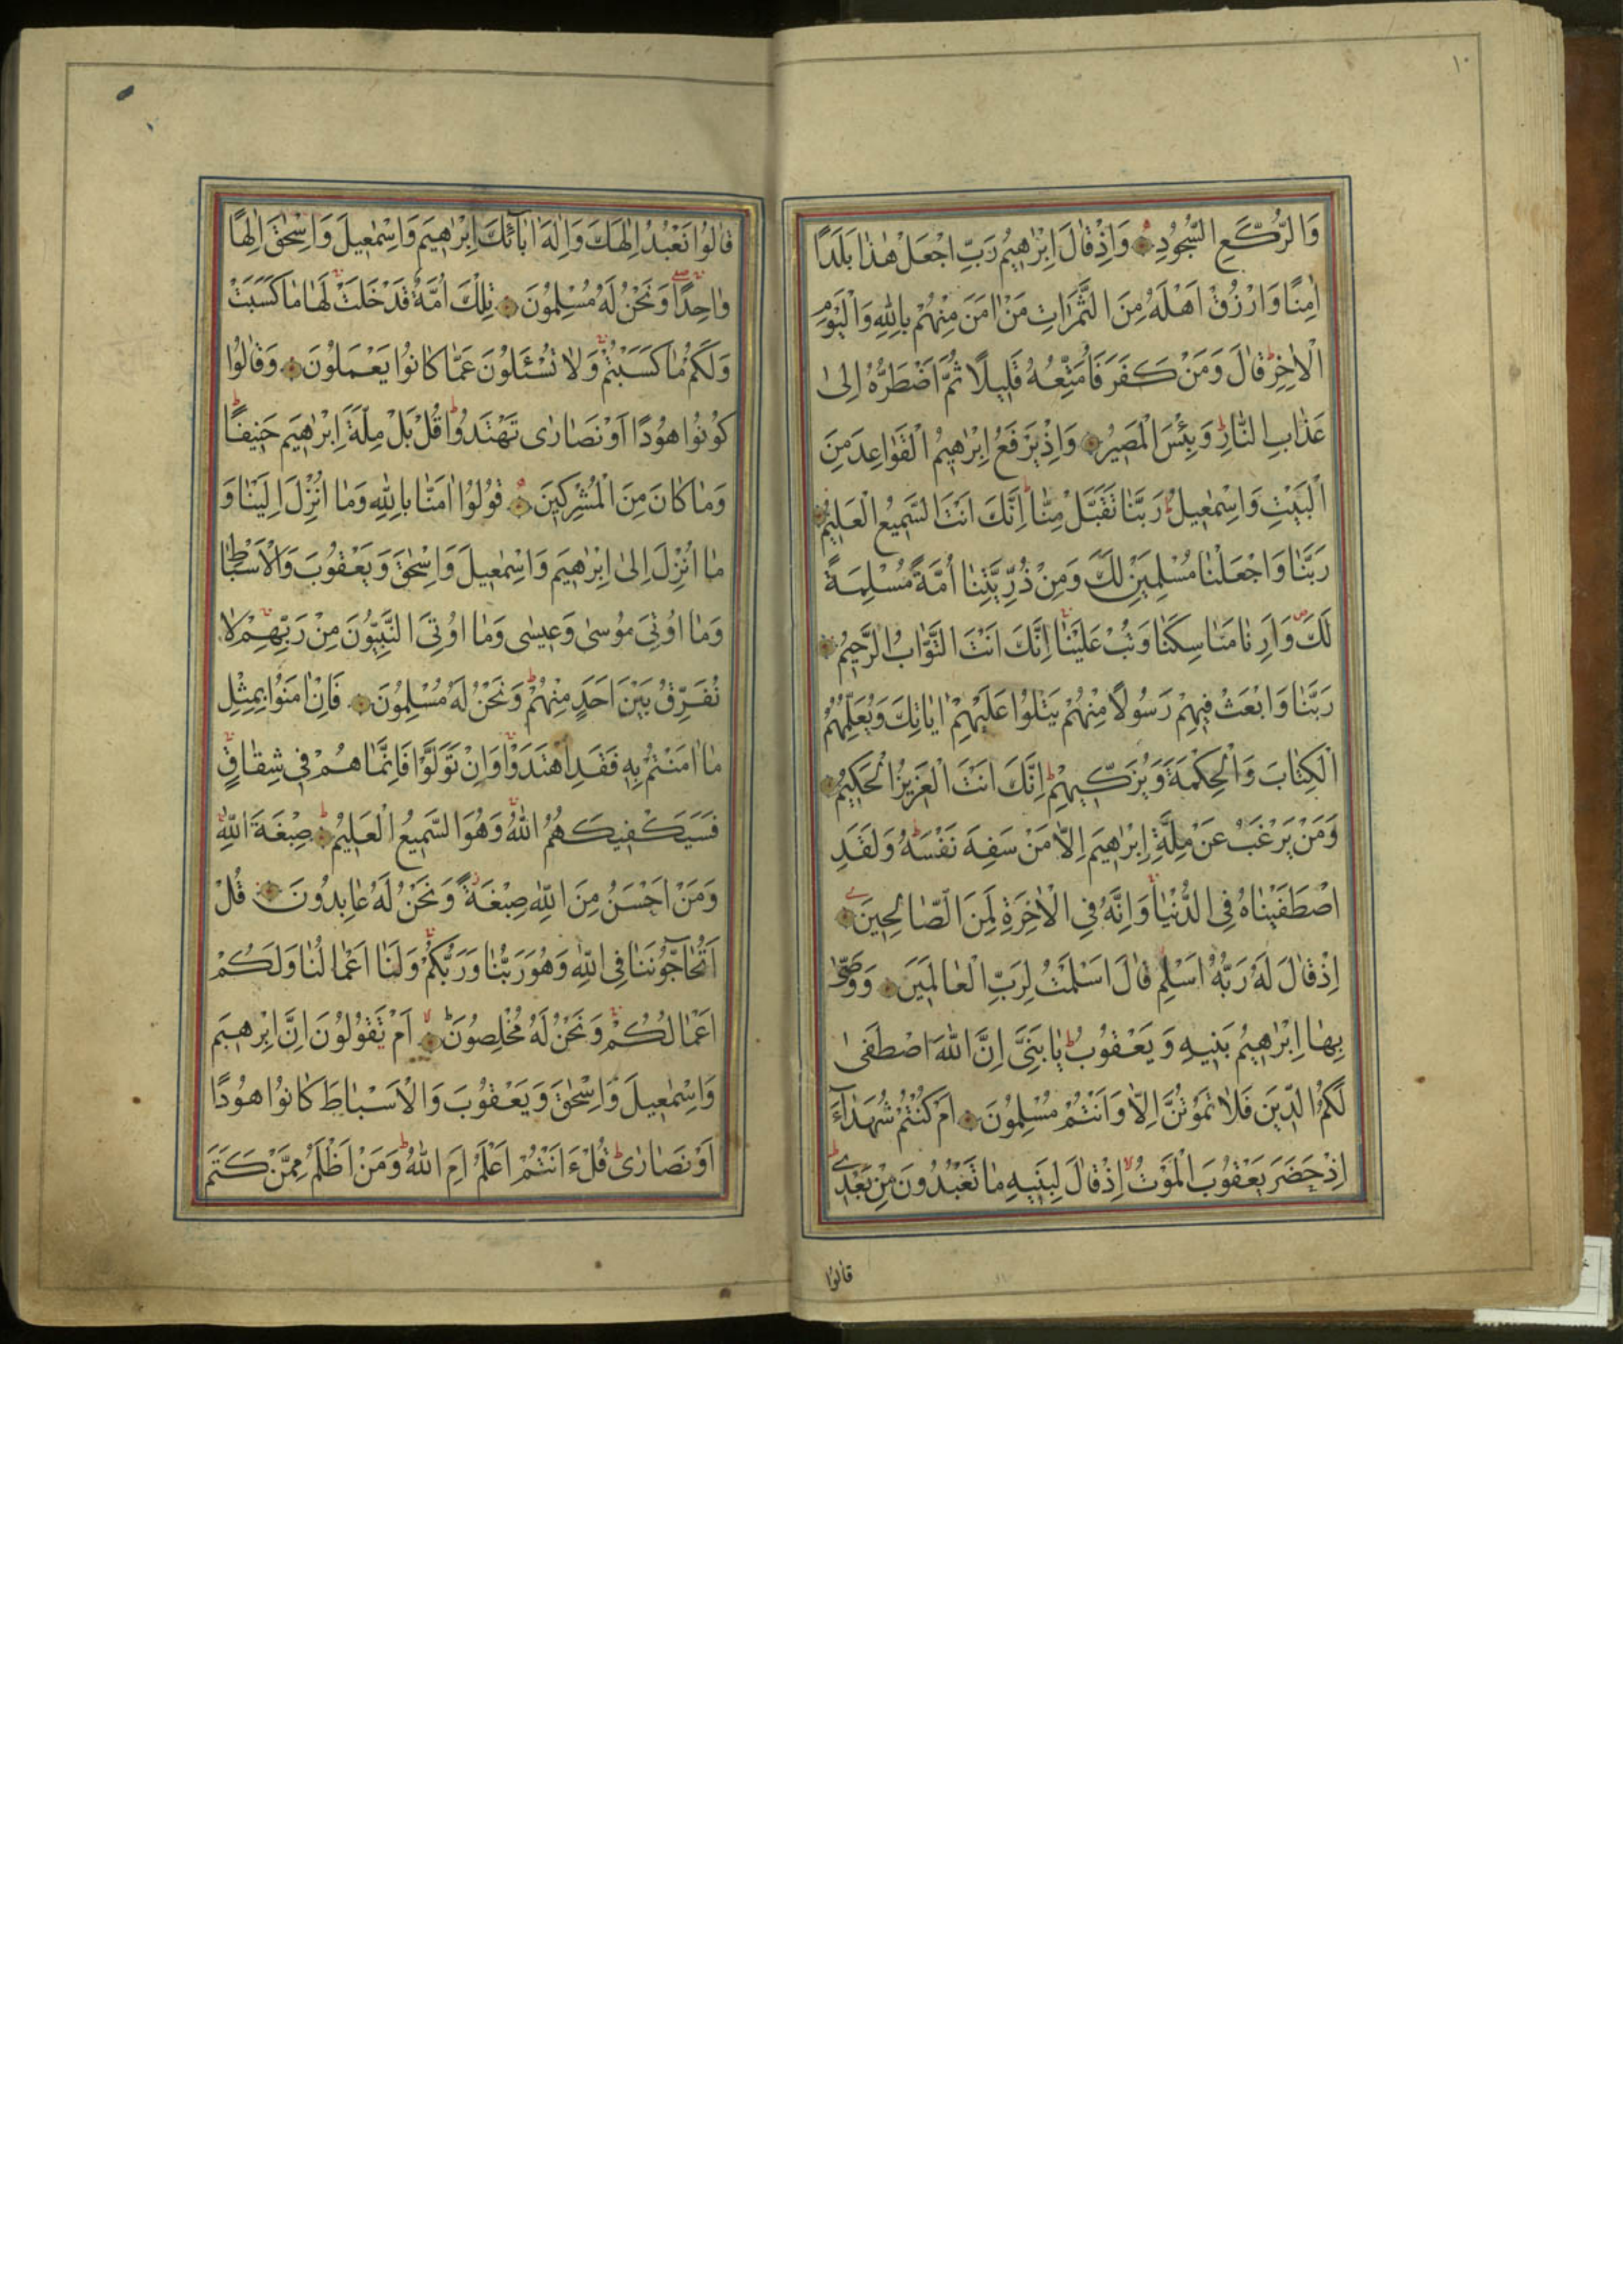 ١٠
وَالرُّكَّعِ السُّجُودِ وَاِذْ قَالَ اِبْرٰهٖيمُ رَبِّ اجْعَلْ هٰذَا بَلَدًا
اٰمِنًا وَارْزُقْ اَهْلَهُ مِنَ الثَّمَرَاتِ مَنْ اٰمَنَ مِنْهُمْ بِاللّٰهِ وَالْيَوْمِ
الْاٰخِرِ قَالَ وَمَنْ كَفَرَ فَاُمَتِّعُهُ قَلِيلًا ثُمَّ اَضْطَرُّهُ اِلىٰ
عَذَابِ النَّارِ وَبِئْسَ الْمَصِيرُ وَاِذْ يَرْفَعُ اِبْرٰهٖيمُ الْقَوَاعِدَ مِنَ
الْبَيْتِ وَاِسْمٰعِيلُ رَبَّنَا تَقَبَّلْ مِنَّا اِنَّكَ اَنْتَ السَّمِيعُ الْعَلِيمُ
رَبَّنَا وَاجْعَلْنَا مُسْلِمَيْنِ لَكَ وَمِنْ ذُرِّيَّتِنَا اُمَّةً مُسْلِمَةً
لَكَ وَاَرِنَا مَنَاسِكَنَا وَتُبْ عَلَيْنَا اِنَّكَ اَنْتَ التَّوَّابُ الرَّحِيمُ
رَبَّنَا وَابْعَثْ فِيهِمْ رَسُولًا مِنْهُمْ يَتْلُوا عَلَيْهِمْ اٰيَاتِكَ وَيُعَلِّمُهُمُ
الْكِتَابَ وَالْحِكْمَةَ وَيُزَكِّيهِمْ اِنَّكَ اَنْتَ الْعَزِيزُ الْحَكِيمُ
وَمَنْ يَرْغَبُ عَنْ مِلَّةِ اِبْرٰهٖيمَ اِلَّا مَنْ سَفِهَ نَفْسَهُ وَلَقَدِ
اصْطَفَيْنَاهُ فِي الدُّنْيَا وَاِنَّهُ فِي الْاٰخِرَةِ لَمِنَ الصَّالِحِينَ
اِذْ قَالَ لَهُ رَبُّهُ اَسْلِمْ قَالَ اَسْلَمْتُ لِرَبِّ الْعَالَمِينَ وَوَصّىٰ
بِهَا اِبْرٰهٖيمُ بَنِيهِ وَيَعْقُوبُ يَا بَنِيَّ اِنَّ اللّٰهَ اصْطَفىٰ
لَكُمُ الدِّينَ فَلَا تَمُوتُنَّ اِلَّا وَاَنْتُمْ مُسْلِمُونَ اَمْ كُنْتُمْ شُهَدَآءَ
اِذْ حَضَرَ يَعْقُوبَ الْمَوْتُ اِذْ قَالَ لِبَنِيهِ مَا تَعْبُدُونَ مِنْ بَعْدِي
قالوا
قَالُوا نَعْبُدُ اِلٰهَكَ وَاِلٰهَ اٰبَآئِكَ اِبْرٰهٖيمَ وَاِسْمٰعِيلَ وَاِسْحٰقَ اِلٰهًا
وَاحِدًا وَنَحْنُ لَهُ مُسْلِمُونَ تِلْكَ اُمَّةٌ قَدْ خَلَتْ لَهَا مَا كَسَبَتْ
وَلَكُمْ مَا كَسَبْتُمْ وَلَا تُسْئَلُونَ عَمَّا كَانُوا يَعْمَلُونَ وَقَالُوا
كُونُوا هُودًا اَوْ نَصَارٰى تَهْتَدُوا قُلْ بَلْ مِلَّةَ اِبْرٰهٖيمَ حَنِيفًا
وَمَا كَانَ مِنَ الْمُشْرِكِينَ قُولُوا اٰمَنَّا بِاللّٰهِ وَمَا اُنْزِلَ اِلَيْنَا وَ
مَا اُنْزِلَ اِلىٰ اِبْرٰهٖيمَ وَاِسْمٰعِيلَ وَاِسْحٰقَ وَيَعْقُوبَ وَالْاَسْبَاطِ
وَمَا اُوتِيَ مُوسىٰ وَعِيسٰى وَمَا اُوتِيَ النَّبِيُّونَ مِنْ رَبِّهِمْ لَا
نُفَرِّقُ بَيْنَ اَحَدٍ مِنْهُمْ وَنَحْنُ لَهُ مُسْلِمُونَ فَاِنْ اٰمَنُوا بِمِثْلِ
مَا اٰمَنْتُمْ بِهِ فَقَدِ اهْتَدَوْا وَاِنْ تَوَلَّوْا فَاِنَّمَا هُمْ فِي شِقَاقٍ
فَسَيَكْفِيكَهُمُ اللّٰهُ وَهُوَ السَّمِيعُ الْعَلِيمُ صِبْغَةَ اللّٰهِ
وَمَنْ اَحْسَنُ مِنَ اللّٰهِ صِبْغَةً وَنَحْنُ لَهُ عَابِدُونَ قُلْ
اَتُحَآجُّونَنَا فِي اللّٰهِ وَهُوَ رَبُّنَا وَرَبُّكُمْ وَلَنَا اَعْمَالُنَا وَلَكُمْ
اَعْمَالُكُمْ وَنَحْنُ لَهُ مُخْلِصُونَ اَمْ تَقُولُونَ اِنَّ اِبْرٰهٖيمَ
وَاِسْمٰعِيلَ وَاِسْحٰقَ وَيَعْقُوبَ وَالْاَسْبَاطَ كَانُوا هُودًا
اَوْ نَصَارٰى قُلْ ءَاَنْتُمْ اَعْلَمُ اَمِ اللّٰهُ وَمَنْ اَظْلَمُ مِمَّنْ كَتَمَ